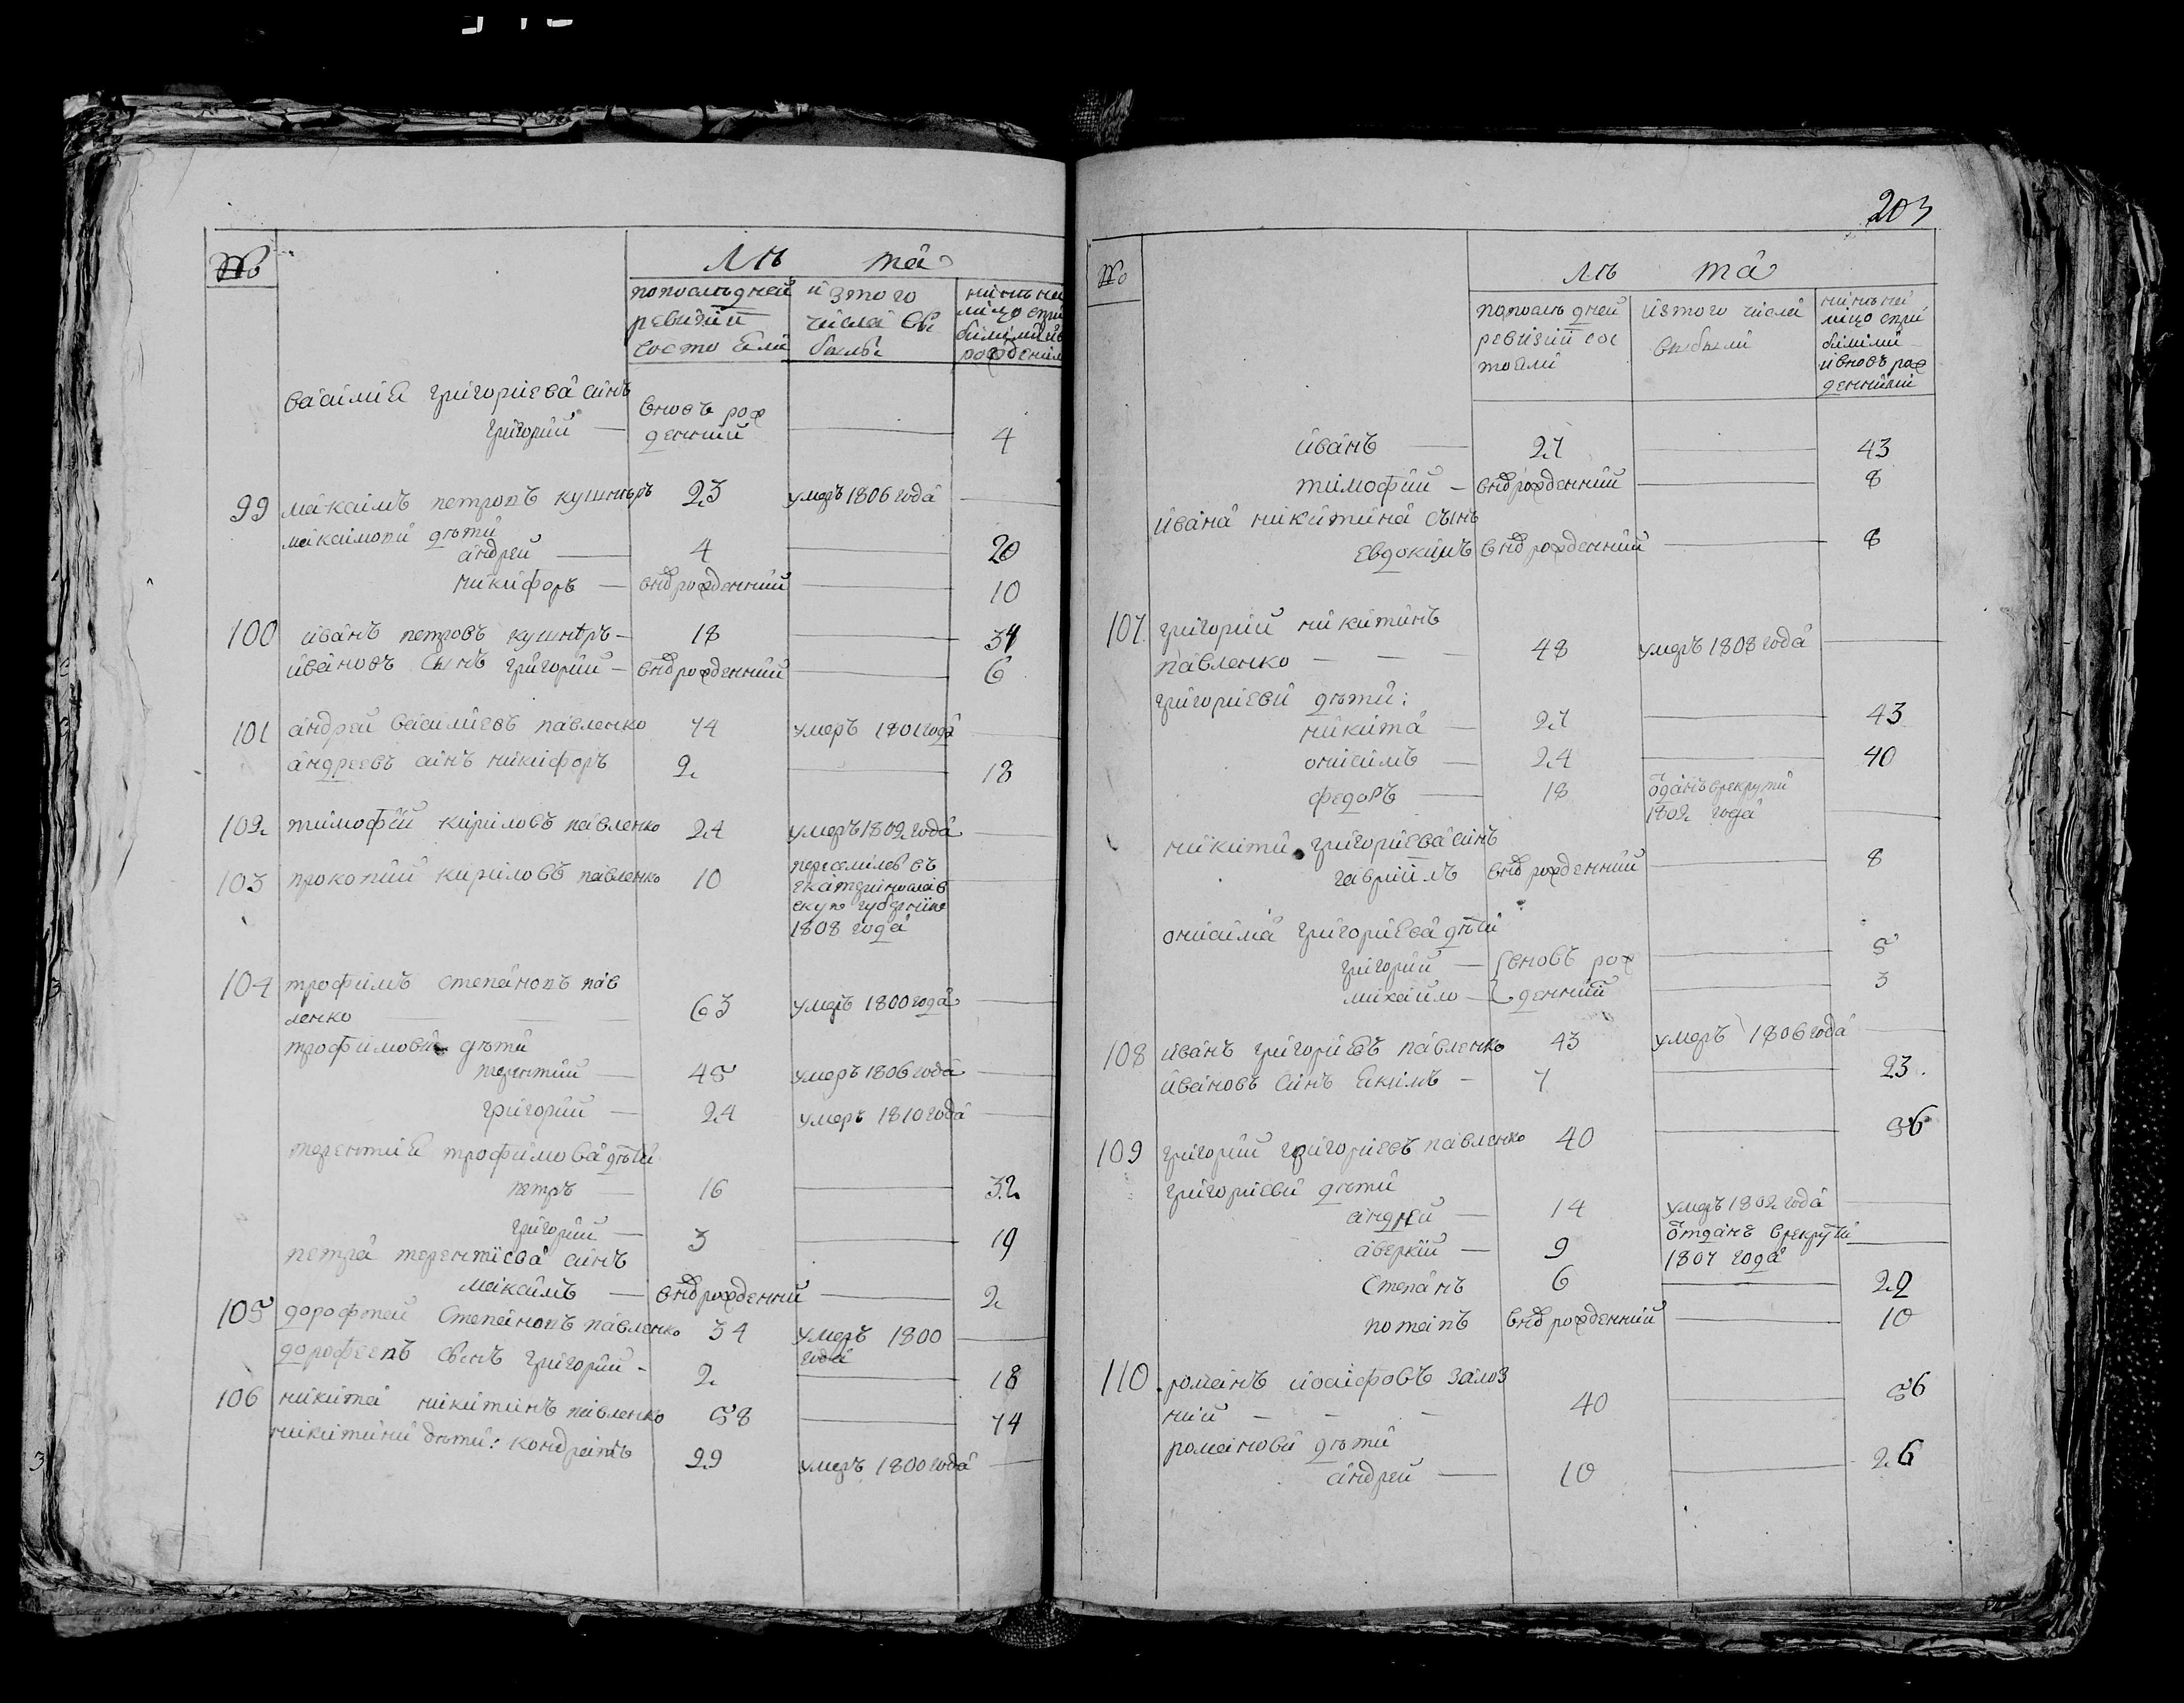 №
лѣ та
попослѣдней ревизіи состояли
изтого числа выбылы
нинѣ на лицо сприбилими ивь рожденим
василия григориева синъ
григорий — вновъ рожденний — 4
99 максимъ петровъ кушнѣръ 23 умеръ 1806 года —
максимови дѣти
андрей — 4 — 20
никифоръ — внов рожденний — 10
100 иванъ петровъ кушнѣръ — 18 — 34
ивановъ сынъ григорий — внов рожденний — 6
101 андрей василиевъ павленко 74 умеръ 1801 года —
андреевъ синъ никифоръ 2 — 18
102 тимофѣй кириловъ павленко 24 умеръ 1802 года —
103 прокопий кириловъ павленко 10 переселилсь въ —
екатеринослав
скую губернию
1808 года
104 трофимъ степановъ пав
ленко — — 63 умеръ 1800 года —
трофимови дѣти
терентий — 45 умеръ 1806 года —
григорий — 24 умеръ 1810 года —
терентия трофимова дѣти
петръ — 16 — 32
григорий — 3 — 19
петра терентиева синъ
максимъ — внов рожденний — 2
105 дорофтей степановъ павленко 34 умеръ 1800 —
года
дорофеевъ синъ григорий - 2 — 18
106 никита никитинъ павленко 58 — 74
никитини дѣти: кондратъ 29 умеръ 1800 года —
203
№
лѣ та
попослѣдней ревизий состояли
изтого числа выбыли
нинѣ на лицо сприбилими ивновъ рожденними
иванъ — 27 — 43
тимофий — внов рожденний — 8
ивана никитина сынъ
евдокимъ внов рожденний — 8
107. григорий никитинъ
павленко — — — 48 умеръ 1808 года —
григориеви дѣти:
никита — 27 — 43
онисимъ — 24 — 40
федоръ — 18 отданъ врекрути —
1802 года
никити григориева синъ
гавриилъ внов рожденний — 8
онисима григориева дѣти
григорий — вновъ рож — 5
михайло — денний — 3
108 иванъ григориевъ павленко 43 умеръ 1806 года —
ивановъ синъ якимъ — 7 — 23.
109 григорий григориевъ павленко 40 — 56
григориеви дѣти
андрей — 14 умеръ 1802 года —
аверкий — 9 отданъ врекрути —
1807 года
степанъ 6 — 22
потапъ внов рожденний — 10
110. романъ иосифовъ залоз
ний — — — 40 — 56
романови дѣти
андрей — 10 — 26